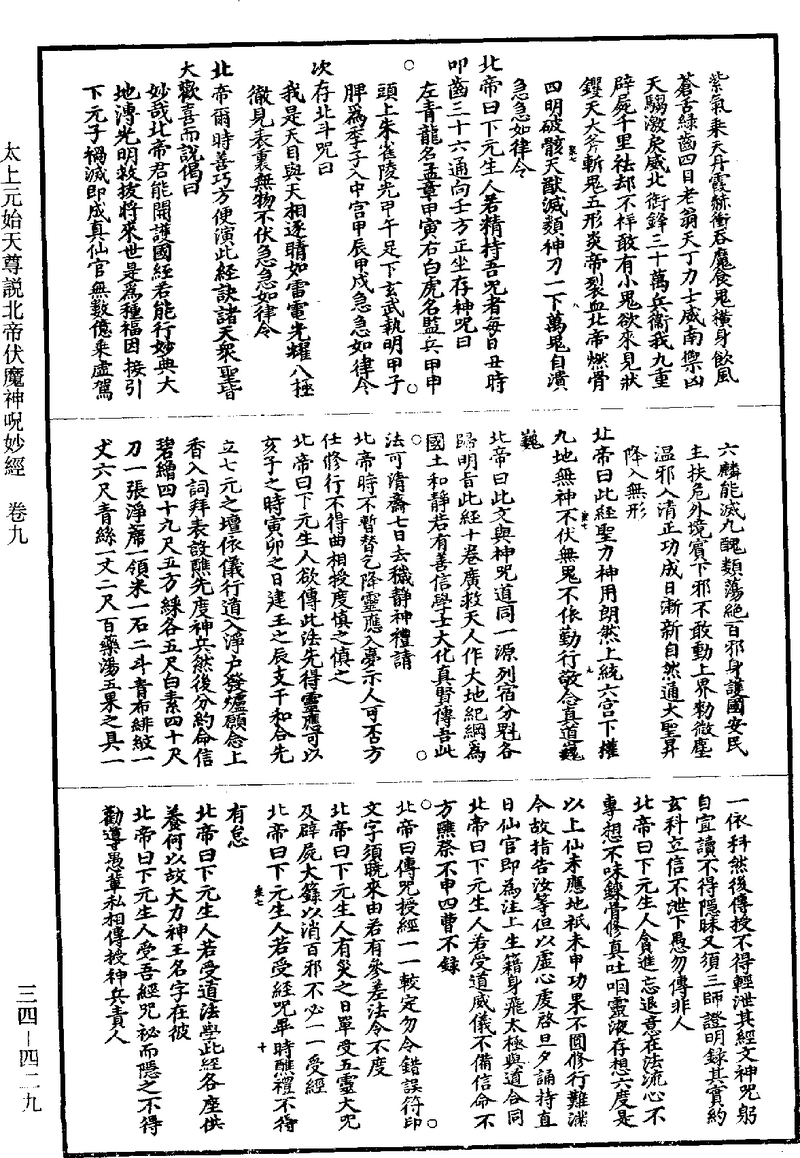 紫氣乘天丹霞赫衝吞魔食鬼橫身飲風
蒼舌綠齒四目老翁天丁力士威南禦凶
天騶激戾威北銜鋒三十萬兵衞我九重
辟屍千里袪却不祥敢有小鬼欲來見狀
钁天大斧斬鬼五形炎帝裂血北帝燃骨
四明破骸天猷滅類神刀一下萬鬼自潰
急急如律令
北帝曰下元生人若精持吾咒者每日丑時
叩齒三十六通向壬方正坐存神咒曰
左青龍名孟章甲寅右白虎名監兵甲申
頭上朱雀陵光甲午足下玄武執明甲子
脾爲李子入中宫甲辰甲戌急急如律令
次存北斗咒曰
我是天目與天相逐睛如雷電光耀八極
徹見表裏無物不伏急急如律令
北帝爾時善巧方便演此經訣諸天衆聖皆
大歡喜而說偈曰
妙哉北帝君能開護國經若能行妙典大
地溥光明救拔將來世是爲種福因接引
下元子禍滅即成真仙官無數億乘虚駕
六麟能滅九醜類蕩絶百邪身護國安民
主扶危外境賓下邪不敢動上界勑微塵
温邪入清正功成日漸新自然通大聖昇
降入無形
北帝曰此經聖力神用朗然上統六宫下攝
九地無神不伏無鬼不依勤行敬念真道巍
巍
北帝曰此文與神咒道同一源列宿分野各
歸明旨此經十卷廣救天人作大地紀綱爲
國土和静若有善信學士大化真賢傳吾此
法可清齋七日去穢静神禮請
北帝時不暫替乞降靈應入夢示人可否方
任修行不得曲相授度慎之慎之
北帝曰下元生人欲傳此法先得靈應可以
亥子之時寅卯之日建王之辰支干和合先
立七元之壇依儀行道入淨户發爐願念上
香入詞拜表設醮先度神兵然後分約命信
碧繒四十九尺五方綵各五尺白素四十尺
刀一張淨席一領米一石二斗青布緋紋一
丈六尺青絲一丈二尺百藥湯五果之具一
一依科然後傳授不得輕泄其經文神咒躬
自宜讀不得隱昧又須三師證明録其實約
玄科立信不泄下愚勿傳非人
北帝曰下元生人貪進忘退意在法流心不
專想不味鍊骨修真吐咽靈液存想六度是
以上仙未應地祇未申功果不圓修行難滿
今故指告汝等但以虚心虔啓旦夕誦持直
日仙官即爲注上生籍身飛太極與道合同
北帝曰下元生人若受道威儀不備信命不
方醮祭不申四曹不錄
北帝曰傳咒授經一一較定勿令錯誤符印
文字須曉來由若有參差法令不度
北帝曰下元生人有災之日單受五靈大咒
及辟屍大籙以消百邪不必一一受經
北帝曰下元生人若受經咒畢時醮禮不得
有怠
北帝曰下元生人若受道法學此經各座供
養何以故大力神王名字在彼
北帝曰下元生人受吾經咒祕而隱之不得
勸導愚輩私相傳授神兵責人
太上元始天尊説北帝伏魔神呪妙經 卷九
三四—四二九